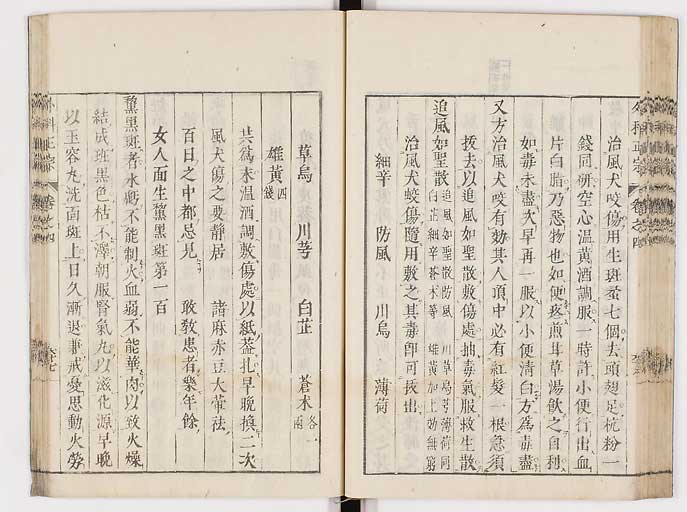 治風犬咬傷用生斑蝥七個去頭翅足杭粉一
錢同研空心温黄酒調服一時許小便行出血
片白脂乃惡物也如便疼煎甘草湯飲之自利
如毒未盡次早再一服以小便清白方爲毒盡
又方治風犬咬有効其人頂中必有紅髮一根急須
拔去以追風如聖散敷傷處抽毒氣服救生散
追風如聖散 追風如聖散防風 川草烏芎薄荷同
白芷細辛蒼朮等 雄黄加上効無窮
治風犬咬傷隨用敷之其毒卽可拔出
細辛 防風 川烏 薄荷
草烏 川芎 白芷 蒼朮 各一兩
雄黄 四錢
共爲末温酒調敷傷處以紙葢扎早晚換二次
風犬傷之要静居 諸麻赤豆大葷祛
百日之中都忌見 敢教患者樂年餘
女人面生黧黑斑第一百
黧黑斑者水虧不能制火血弱不能華肉以致火燥
結成斑黑色枯不澤朝服腎氣丸以滋化源早晚
以玉容丸洗面斑上日久漸退兼戒憂思動火勞
外科正宗 卷之四
外科正宗 卷之四